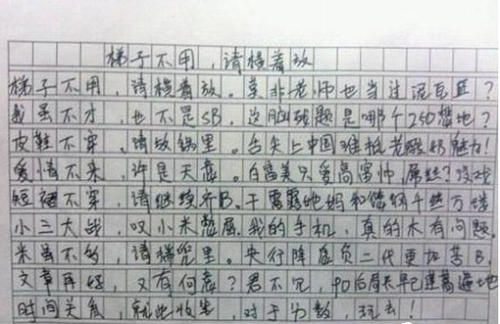 梯子不用,请横着放
梯子不用,请横着放。莫非老师也当过泥瓦匠?
我虽不才,也不是SB,这脑残题是哪个250想地?
皮鞋不穿,请放锅里。当尖上中国准备老酸奶魅力!
爱情不来,许是天意。白富美只爱高富帅,屌丝?没戏
短裙不穿,请继续齐B。干露露她妈和雷钢千丝万缕
小三大战,叹小米憋屈。我的手机,真的木有问题。
米虽不多,请揣兜里。央行降息负二代更加苦B。
文章再好,又有何意?君不见,90后局长早已遍地
时间关系,就此收笔,对于分数,玩去!